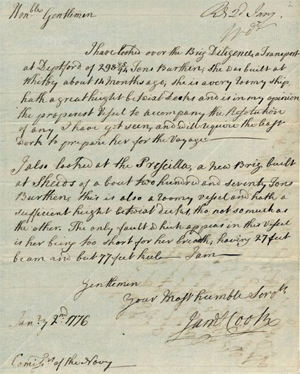 Hon.ble Gentlemen
R 2 Jan.y
I have look'd over the Brig Diligence a Transport
at Deptford of 298 Tons Burthen, She was built at
Whitby about 18 months ago, she is a very roomy ship,
hath a great height betwixt decks and is in my opinion
the properest vessel to accompany the Resolution
of any I have yet seen, and will require the least
work to prepare her for the Voyage
I also looked at the Prescilla, a new Brig built
at Shields of about two hundred and seventy Tons
Burthen; this is also a roomy vessel and hath a
sufficient height betwixt decks, tho not so much as
the other. The only fault which appears in this vessel
is her being too short for her breadth, having 27 feet
beam and but 77 feet keel - I am
Gentlemen
Your Most humble Serv.t
Jam.s Cook
Jan.ry 2.nd 1776
Com.rs of the Navy